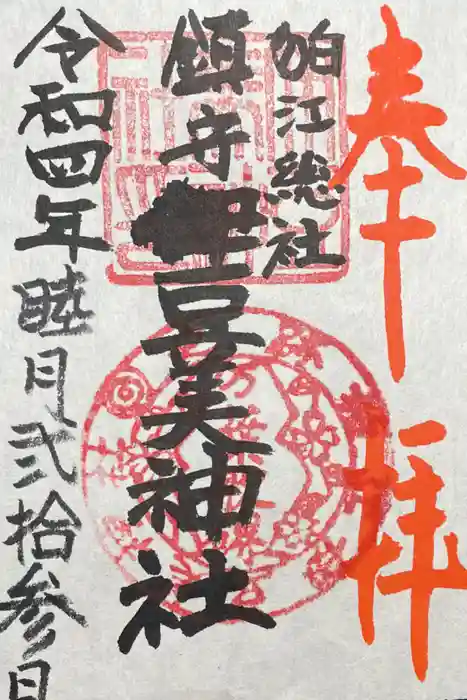 奉拝
狛江総社
鎮守伊豆美神社
令和四年睦月弐拾参日